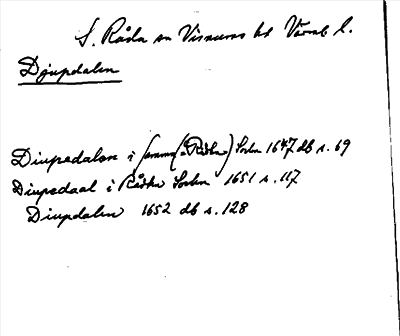 S. Råda sn Visnums hd Värml l.
Djupedalen
Diupedalen i samma (a Rådha) Sochn 1647 db s. 69
Diupedaal i Rådha Sochn 1651 s. 117
Diupdalen 1652 db s. 128